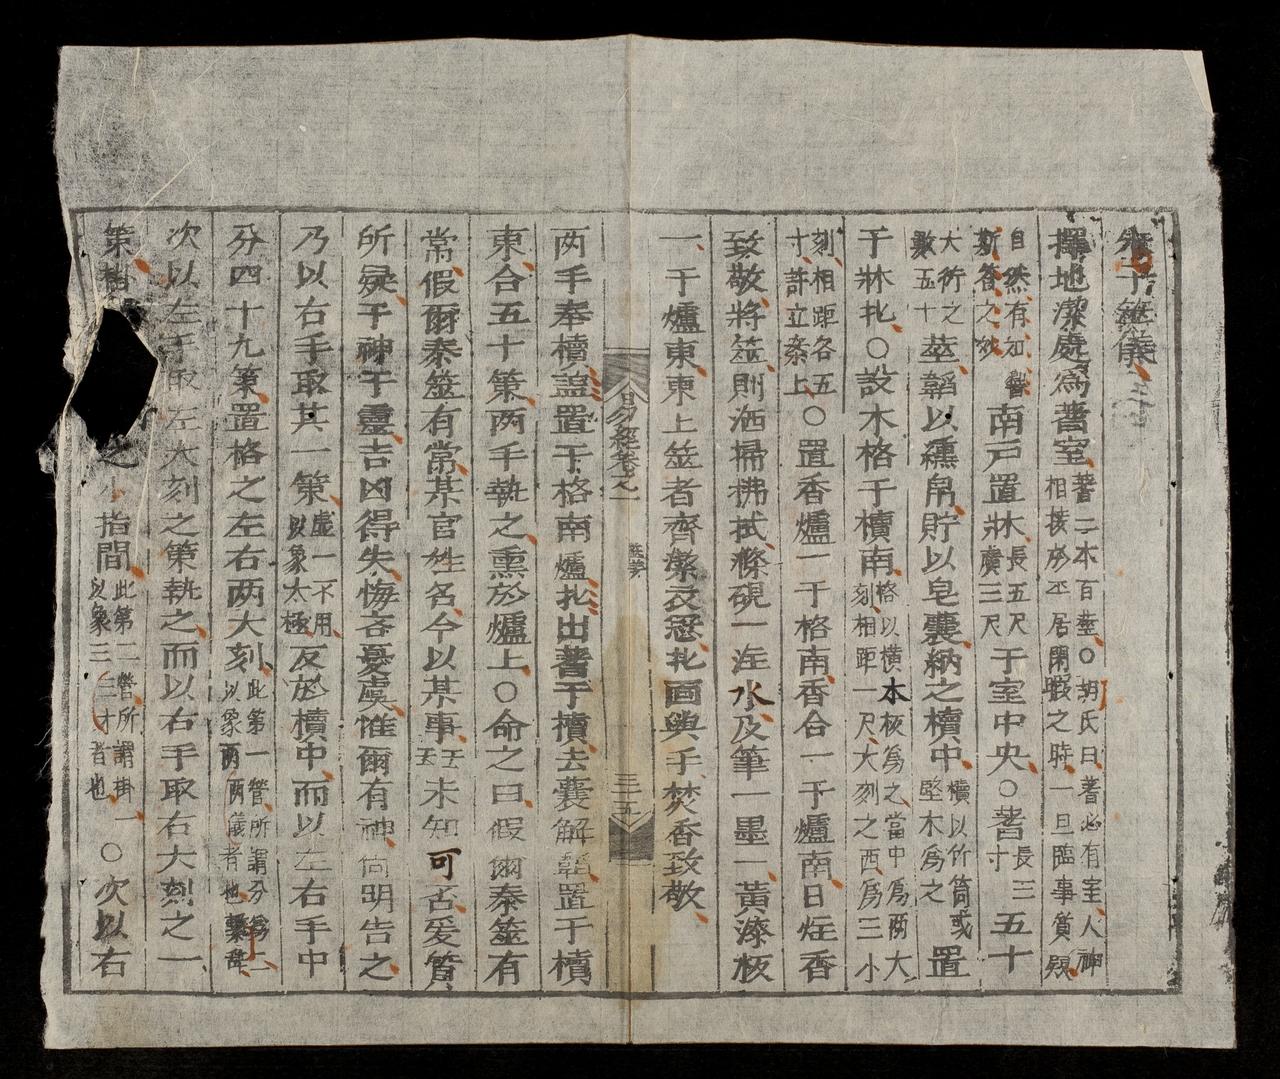 朱子筮儀
擇地潔處為蓍室蓍二本百莖○胡氏曰蓍必有室人神相接於平居閑暇之時一旦臨事質疑
自然有如響斯答之妙南戸置牀長五尺廣三尺于室中央○蓍長三寸五十
大衍之數五十莖韜以纁帛貯以皂囊納之櫝中櫝以竹筒或堅木為之置
于牀北○設木格于櫝南格以橫木板為之當中為兩大刻相距一尺大刻之西為三小
刻相距各五寸許立案上○置香爐一于格南香合一于爐南日炷香
致敬將筮則洒掃拂拭滌硯一注水及筆一墨一黃漆板
一于爐東東上筮者齊潔衣冠北面與手焚香致敬
易經卷之一
三五
两手奉櫝蓋置于格南爐北出蓍于櫝去囊解韜置于櫝
東合五十策两手執之熏於爐上○命之曰假爾泰筮有
常假爾泰筮有常某官姓名今以某事云云未知可否爰質
所疑于神于靈吉凶得失悔吝憂虞惟爾有神尙明告之
乃以右手取其一策虛一不用以象太極反於櫝中而以左右手中
分四十九策置格之左右两大刻此第一營所謂分為二以象兩两儀者也繫辞
次以左手取左大刻之策執之而以右手取右大刻之一
策掛 之小指間此第二營所謂掛一以象三三才者也○次以右